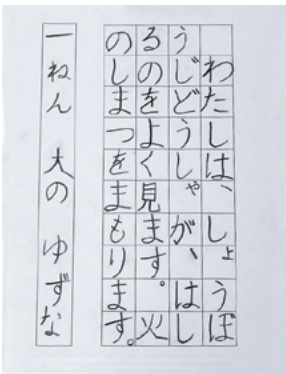 わたしは、しょうぼ
うじどうしゃが、はし
るのをよく見ます。火
のしまつをまもります。
一ねん 大の ゆずな